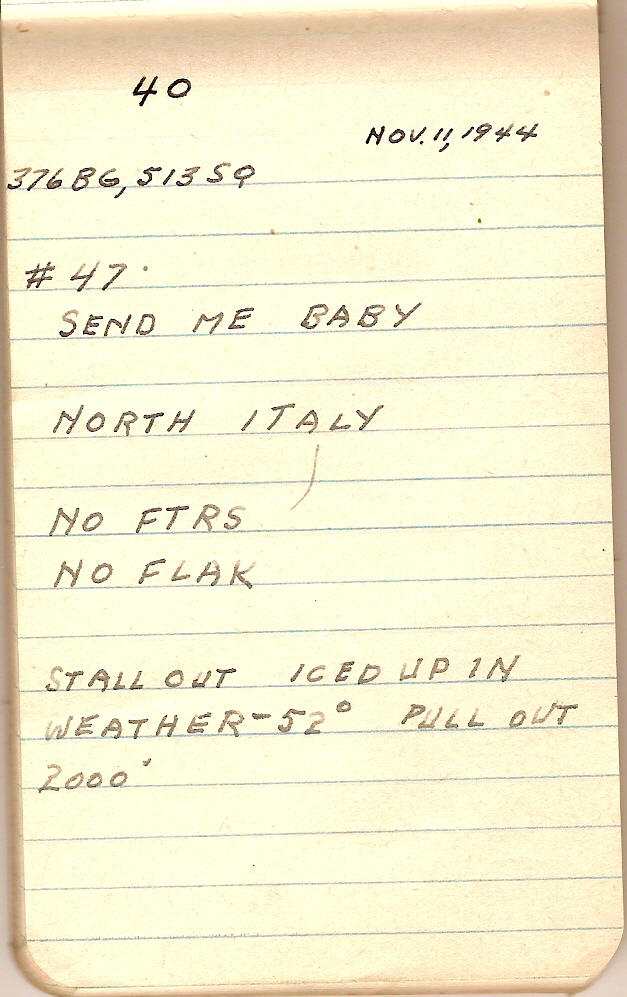 40
NOV. 11, 1944
376 BG, 513 SQ
#47
SEND ME BABY
NORTH ITALY
NO FTRS
NO FLAK
STALL OUT ICED UP IN
WEATHER -52° PULL OUT
2000'